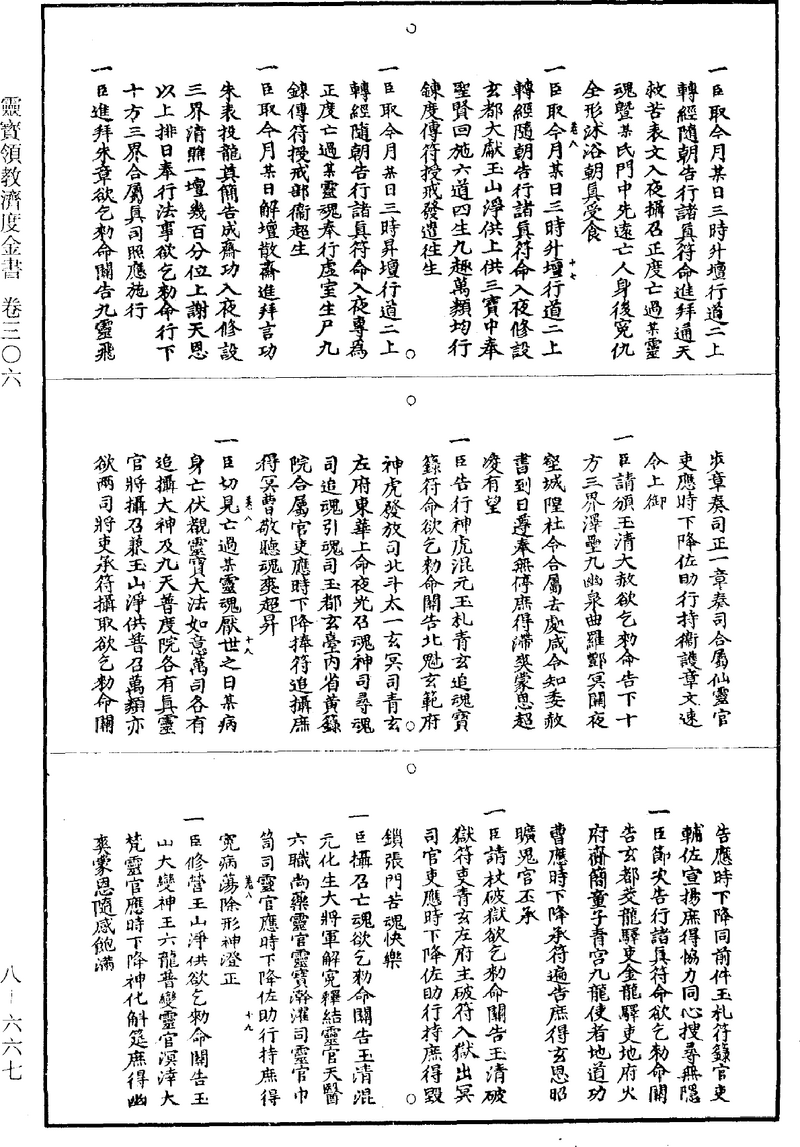 一臣取今月某日三時升壇行道二上
轉經隨朝告行諸真符命進拜通天
救苦表文入夜攝召正度亡過某靈
魂曁某氏門中先遠亡人身後冤仇
全形沐浴朝真受食
卷八 十七
一臣取今月某日三時升壇行道二上
轉經隨朝告行諸真符命入夜修設
玄都大獻玉山淨供上供三寶中奉
聖賢回施六道四生九趣萬類均行
鍊度傳符授戒發遣往生
一臣取今月某日三時昇壇行道二上
轉經隨朝告行諸真符命入夜專為
正度亡過某靈魂奉行虛室生尸九
鍊傳符授戒部衛超生
一臣取今月某日解壇散齋進拜言功
朱表投龍奠簡告成齋功入夜修設
三界清醮一壇幾百分位上謝天恩
以上排日奉行法事欲乞勑命行下
十方三界合屬真司照應施行
一臣進拜朱章欲乞勑命關告九靈飛
步章奏司正一章奏司合屬仙靈官
吏應時下降佐助行持衛護章文速
令上御
一臣請頒玉清大赦欲乞勑命告下十
方三界澤壘九幽泉曲羅酆冥關夜
壑城隍社令合屬去處咸令知委赦
書到日遵奉無停庶得滯爽蒙恩超
凌有望
一臣告行神虎混元玉札青玄追魂寶
籙符命欲乞勑命關告北魁玄範府
神虎發放司北斗太一玄冥司青玄
左府東華上命夜光召魂神司尋魂
司追魂引魂司玉都玄臺內省黃籙
院合屬官吏應時下降捧符追攝庶
得冥曹敬聽魂爽超昇
卷八 十八
一臣切見亡過某靈魂厭世之日某病
身亡伏覩靈寶大法如意萬司各有
追攝大神及九天普度院各有真靈
官將攝召兼玉山淨供普召萬類亦
欲兩司將吏承符攝取欲乞勑命關
告應時下降同前件玉札符籙官吏
輔佐宣揚庶得協力同心搜尋無隱
一臣節次告行諸真符命欲乞勑命關
告玄都茭龍驛吏金龍驛吏地府火
府齋簡童子青宮九龍使者地道功
曹應時下降承符遍告庶得玄恩昭
曠鬼官丕承
一臣請杖破獄欲乞勑命關告玉清破
獄符吏青玄左府主破符入獄出冥
司官吏應時下降佐助行持庶得毀
鎖張門苦魂快樂
一臣攝召亡魂欲乞勑命關告玉清混
元化生大將軍解冤釋結靈官天醫
六職尚藥靈官靈寶澣濯司靈官巾
笥司靈官應時下降佐助行持庶得
卷八 十九
冤病蕩除形神澄正
一臣修營玉山淨供欲乞勑命關告玉
山大變神王六龍普變靈官溟涬大
梵靈官應時下降神化斛筵庶得幽
爽蒙恩隨感飽滿
靈寶領教濟度金書 卷三〇六
八—六六七